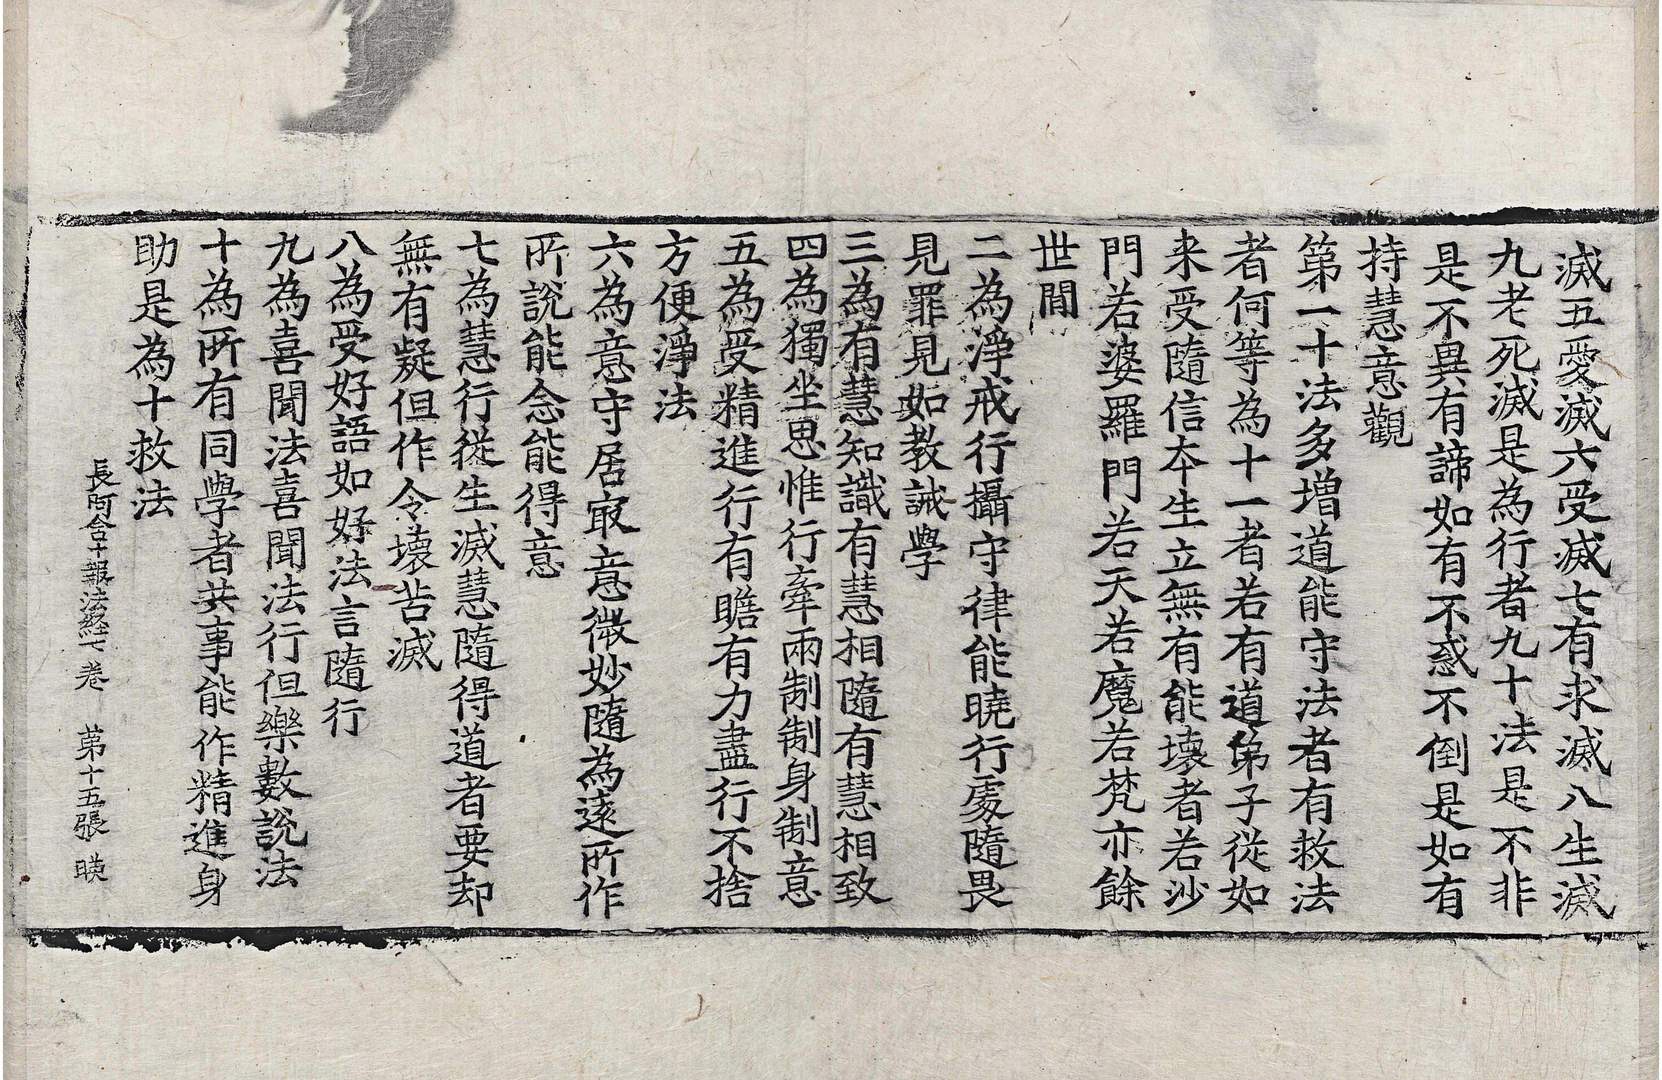 滅五愛滅六受滅七有求滅八生滅
九老死滅是為行者九十法是不非
是不異有諦如有不惑不倒是如有
持慧意觀
第一十法多增道能守法者有救法
者何等為十一者若有道弟子從如
来受隨信夲生立無有能壊者若沙
門若婆羅門若天若魔若梵亦餘
世間
二為淨戒行攝守律能曉行處隨畏
見罪見如教誡學
三為有慧知識有慧相隨有慧相致
四為獨坐思惟行牽兩制制身制意
五為受精進行有瞻有力盡行不捨
方便淨法
六為意守居㝡意微妙隨為遠所作
所說能念能得意
七為慧行從生滅慧隨得道者要却
無有凝但作令壊苦滅
八為受好語如好法言隨行
九為喜聞法喜聞法行但樂數說法
十為所有同學者共事能作精進身
助是為十救法
長阿含十報法經下卷 第十五張 暎